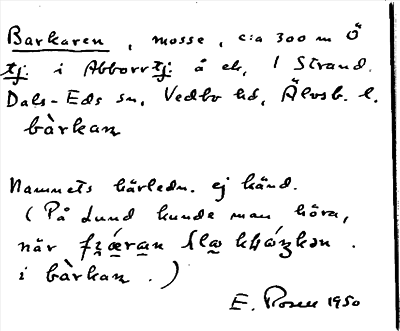 Barkaren, mosse, c:a 300 m Ö
tj. i Abborrtj. å ek, 1 Strand.
Dals-Eds sn, Vedbo hd, Älvsb. l.
bàrkan
Namnets härledn. ej känd.
(På Lund kunde man höra,
när fjǽran
i bàrkan.)
E. Rosell 1950